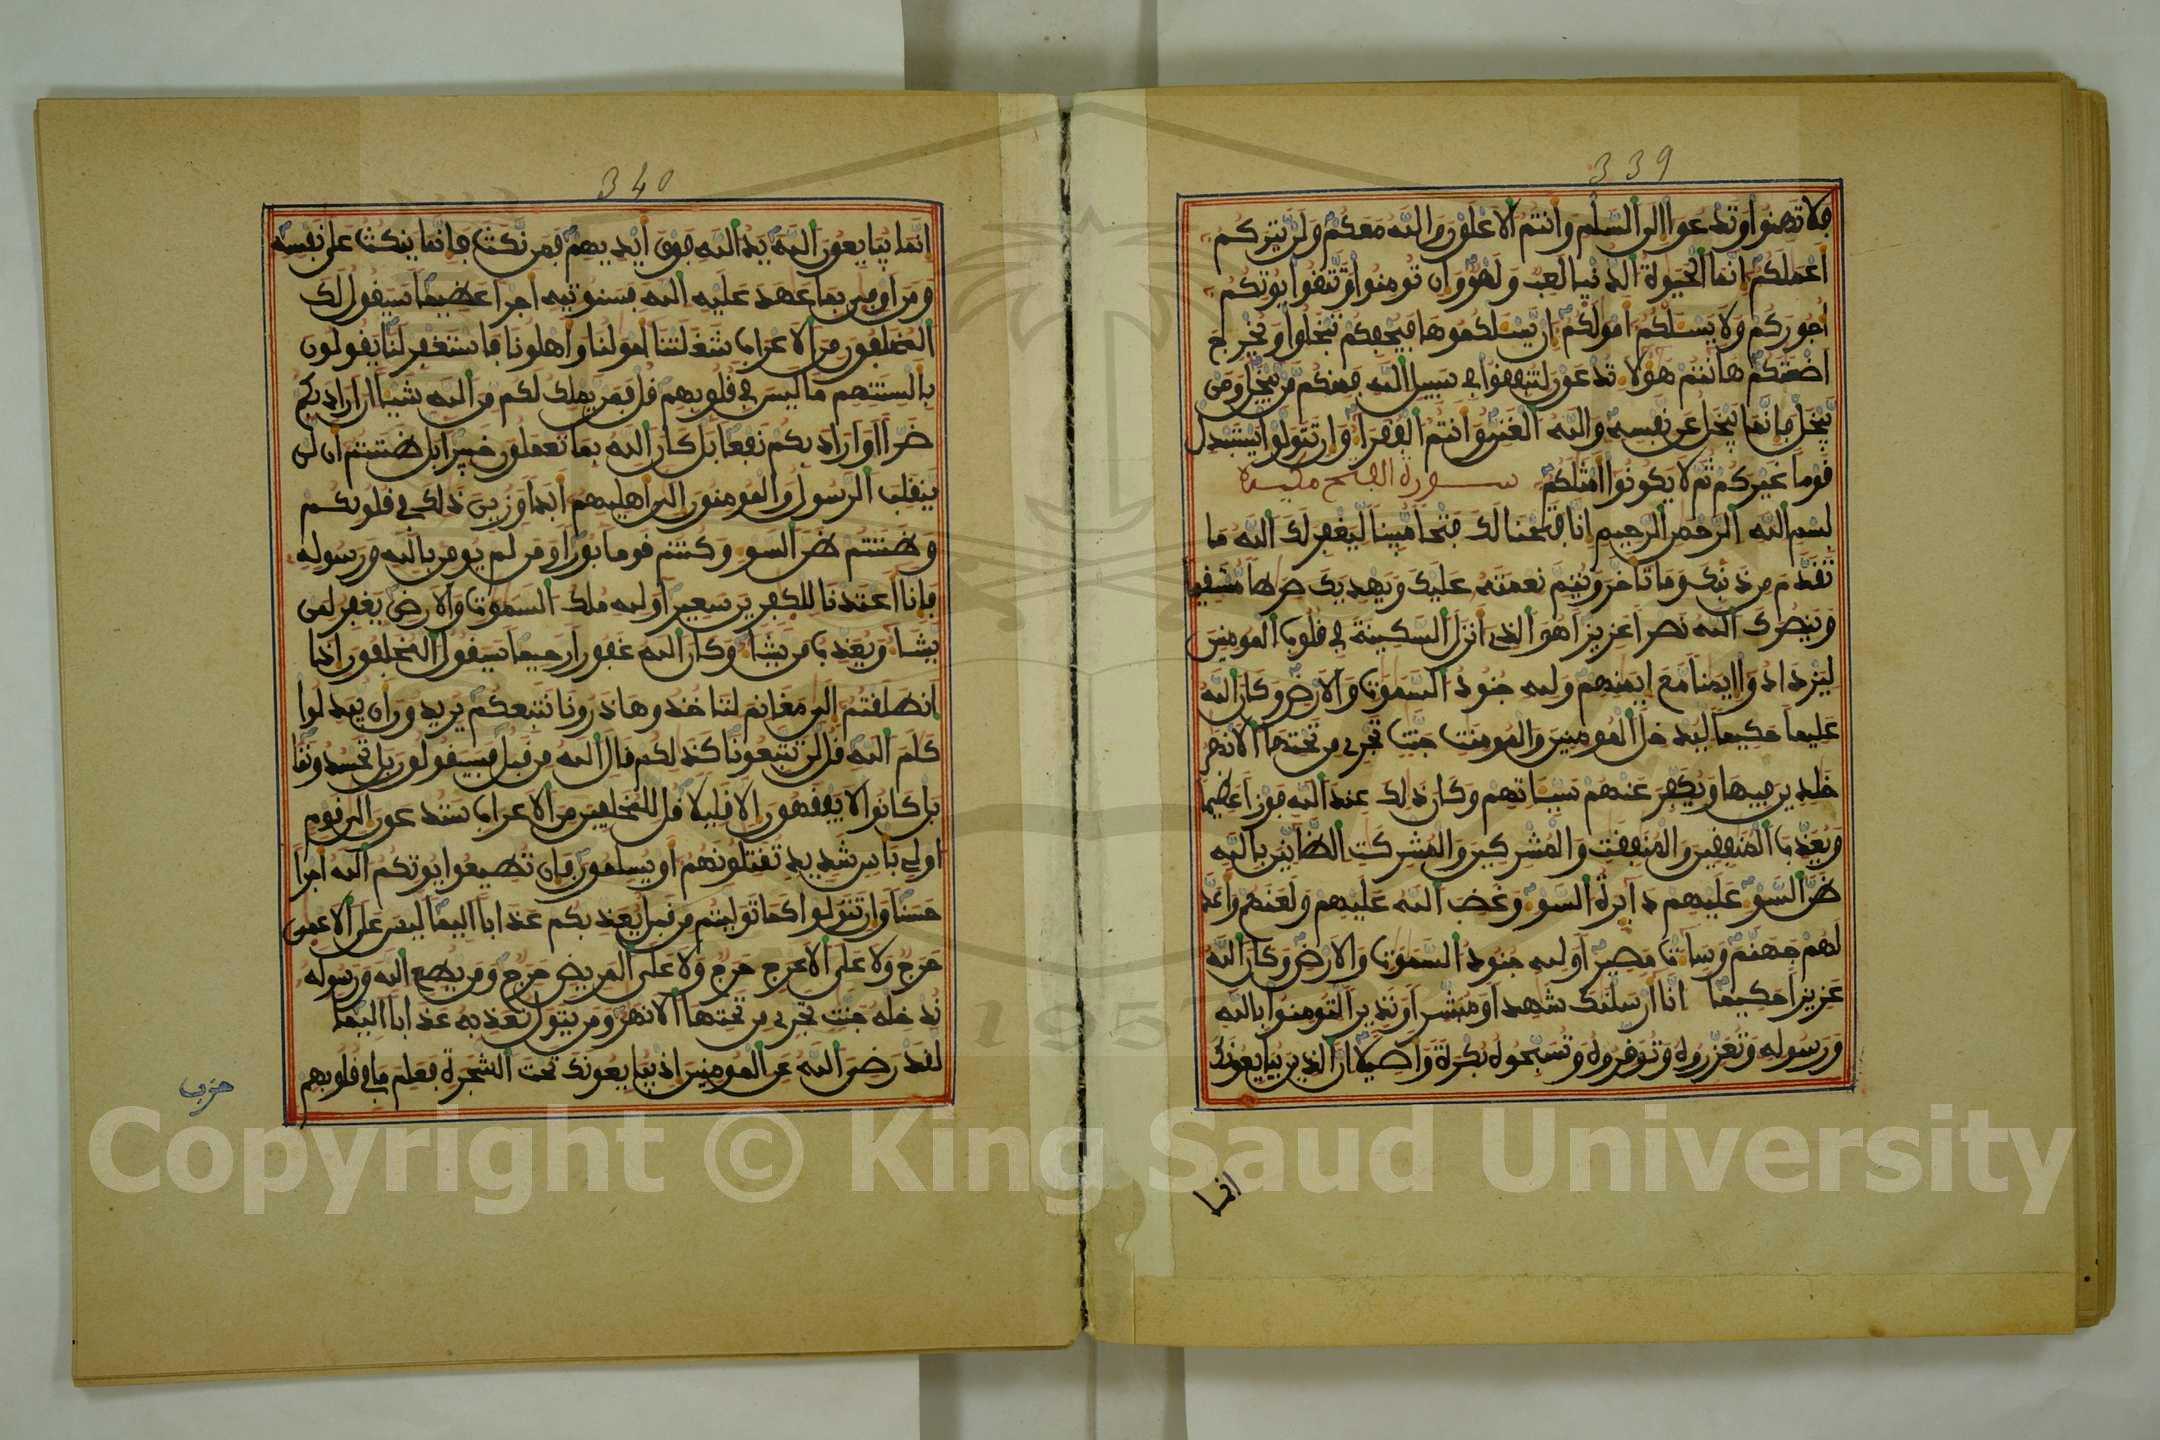 339
فلا تهنوا وتدعوا الى السلم وانتم الاعلون والله معكم ولن يتركم
اعملكم انما الحيوة الدنيا لعب ولهو وان تومنوا وتتقوا يوتكم
اجوركم ولا يسلكم امولكم ان يسلكموها فيحفكم تبخلوا ويخرج
اضغنكم هانتم هولا تدعون لتنفقوا في سبيل الله فمنكم من يبخل ومن
يبخل فانما يبخل عن نفسه والله الغني وانتم الفقرا وان تتولوا يستبدل
قوما غيركم ثم لا يكونوا امثلكم سورة الفتح
بسم الله الرحمن الرحيم انا فتحنا لك فتحا مبينا ليغفر لك الله ما
تقدم من ذنبك وما تاخر ويتم نعمته عليك ويهديك صرطا مستقيما
وينصرك الله نصرا عزيزا هو الذي انزل السكينة في قلوب المومنين
ليزدادوا ايمنا مع ايمنهم ولله جنود السموت والارض وكان الله
عليما حكيما ليدخل المومنين والمومنت جنت تجري من تحتها الانهر
خلدين فيها ويكفر عنهم سياتهم وكان ذلك عند الله فوزا عظيما
ويعذب المنفقين والمنفقت والمشركين والمشركت الظانين بالله
ظن السو عليهم دايرة السو وغضب الله عليهم ولعنهم واعد
لهم جهنم وسات مصيرا ولله جنود السموت والارض وكان الله
عزيزا حكيما انا ارسلنك شهدا ومبشرا ونذيرا لتومنوا بالله
ورسوله وتعزروه وتوقروه وتسبحوه بكرة واصيلا ان الذين يبايعونك
انما
340
انما يبايعون الله يد الله فوق ايديهم فمن نكث فانما ينكث على نفسه
ومن اوفى بما عهد عليه الله فسنوتيه اجرا عظيما سيقول لك
المخلفون من الاعراب شغلتنا امولنا واهلونا فاستغفر لنا يقولون
بالسنتهم ما ليس في قلوبهم قل فمن يملك لكم من الله شيا ان اراد بكم
ضرا او اراد بكم نفعا بل كان الله بما تعملون خبيرا بل ظننتم ان لن
ينقلب الرسول والمومنون الى اهليهم ابدا وزين ذلك في قلوبكم
وظننتم ظن السو وكنتم قوما بورا ومن لم يومن بالله ورسوله
فانا اعتدنا للكفرين سعيرا ولله ملك السموت والارض يغفر لمن
يشا ويعذب من يشا وكان الله غفورا رحيما سيقول المخلفون اذا
انطلقتم الى مغانم لتاخذوها ذرونا نتبعكم يريدون ان يبدلوا
كلم الله قل لن تتبعونا كذلكم قال الله من قبل فسيقولون بل تحسدوننا
بل كانوا لا يفقهون الا قليلا قل للمخلفين من الاعراب ستدعون الى قوم
اولي باس شديد تقتلونهم او يسلمون فان تطيعوا يوتكم الله اجرا
حسنا وان تتولوا كما توليتم من قبل يعذبكم عذابا اليما ليس على الاعمى
حرج ولا على الاعرج حرج ولا على المريض حرج ومن يطع الله ورسوله
ندخله جنت تجري من تحتها الانهر ومن يتول نعذبه عذابا اليما
لقد رضي الله عن المومنين اذ يبايعونك تحت الشجرة فعلم ما في قلوبهم
حزب
1957
Copyright © King Saud University